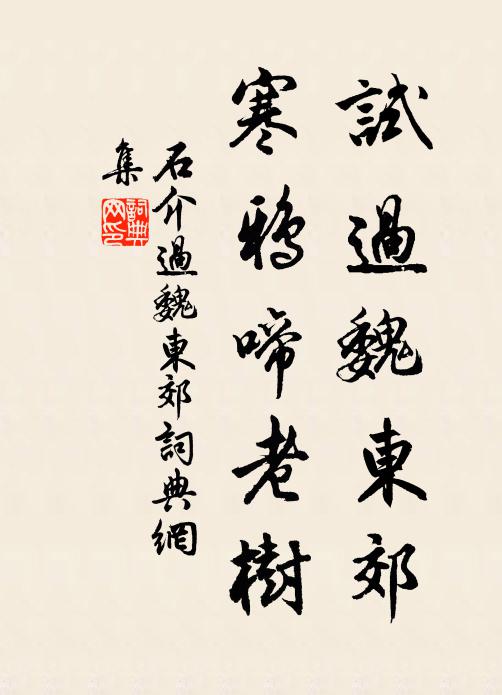 試過魏東郊
寒鴉啼老樹
石介過魏東郊詞典網
集
詞典
网印